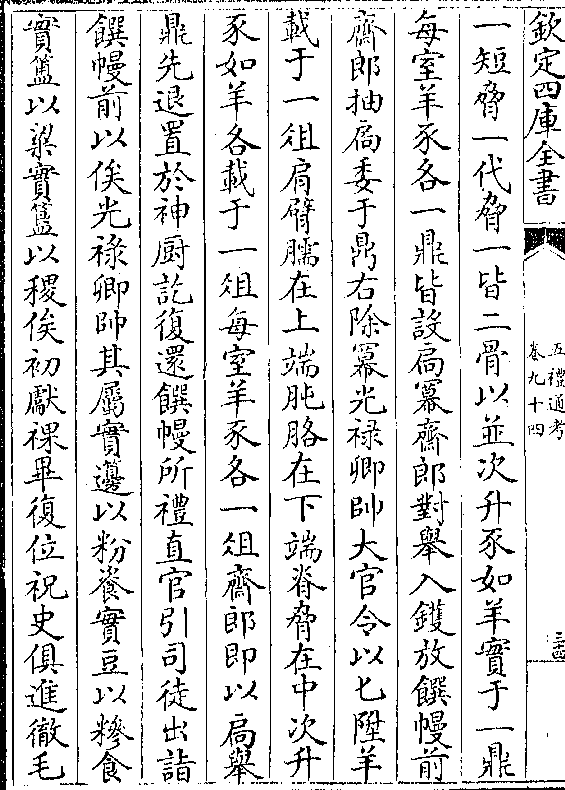 欽定四庫全書
五禮通考
卷九十四
三十四
一短脅一代脅一皆二骨以並次升豕如羊實于一鼎
每室羊豕各一鼎皆設扃冪齋郎對舉入鑊放饌幔前
齋郎抽扃委于鼎右除冪光禄卿帥大官令以匕陞羊
載于一俎肩臂臑在上端肫胳在下端脊脅在中次升
豕如羊各載于一俎每室羊豕各一俎齋郎即以扃舉
鼎先退置於神厨訖復還饌幔所禮直官引司徒出詣
饌幔前以俟光禄卿帥其屬實籩以粉餈實豆以糝食
實簠以粱實簋以稷俟初獻祼畢復位祝史俱進徹毛